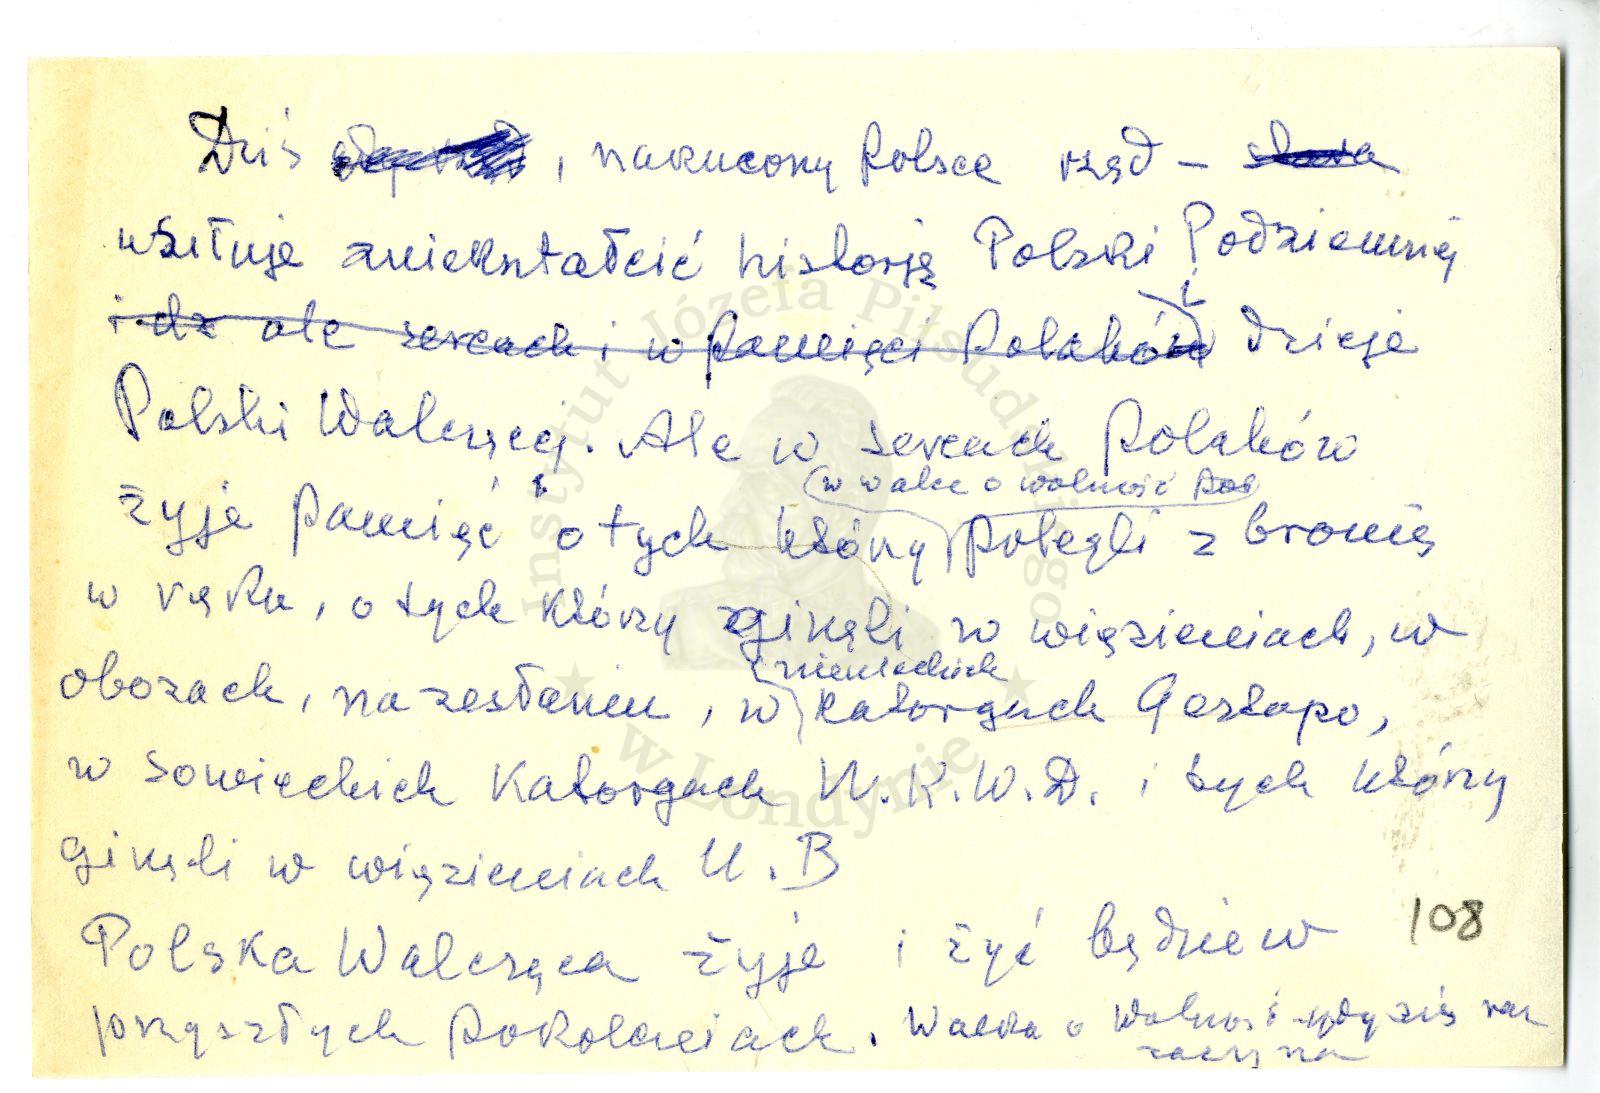 Dziś , narzucony Polsce rząd – stara
usiłuje zniekształcić historję Polski Podziemnej
i dz ale sercach i w pamięci Polaków i dzieje
Polski Walczącej. Ale w sercach Polaków
(w walce o wolność Pol
żyje pamięć o tych którzy polegli z bronią
w ręku, o tych którzy ginęli w więzieniach, w
niemieckich
obozach, na zesłaniu, w katorgach Gestapo,
w sowieckich katorgach N.K.W.D. i tych którzy
ginęli w więzieniach U.B
Polska Walcząca żyje i żyć będzie w
108
przyszłych pokoleniach. Walka o Wolność gdy się raz
zaczyna
Instytut Józefa Piłsudskiego
w Londynie